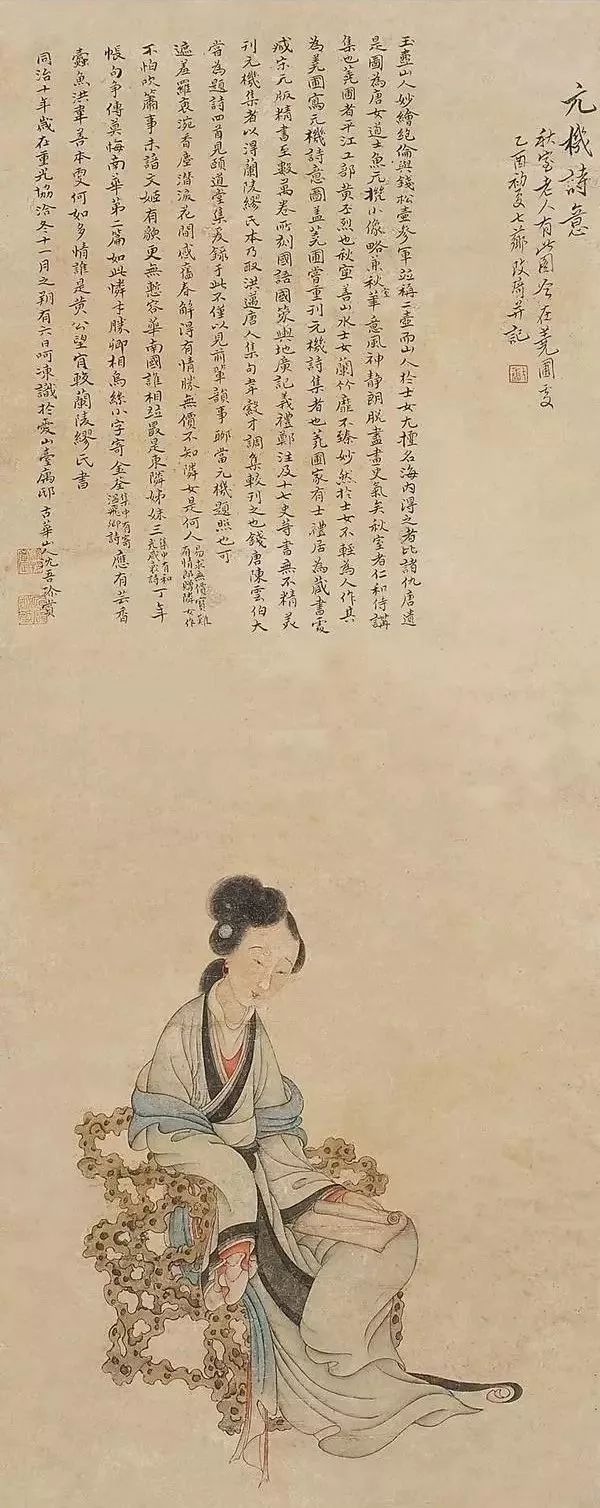 元機詩意
秋室老人有此圖今在蕘圃處
乙酉初夏七薌改琦并記
玉壺山人妙繪絕倫與錢松壺參軍並稱二壺而山人於士女尤擅名海內得之者比諸仇唐遺
是圖為唐女道士魚元機小像略兼秋華意風神靜朗脫盡畫史氣矣秋室者仁和侍講
集也蕘圃者平江工部黃丕烈也秋室善山水士女蘭竹靡不臻妙然於士女不輕為人作其
為蕘圃寫元機詩意圖蓋蕘圃嘗重刊元機詩集者也蕘圃家有士禮居為藏書處
臧宋元版精書至數萬卷所刻國語國策輿地廣記義禮鄭注及十七史等書無不精美
刊元機集者以得蘭陵繆氏本乃取洪邁唐人集句韋縠才調集較刊之也錢唐陳雲伯大
當為題詩四首見頤道堂集爰錄于此不僅以見前輩韻事聊當元機題照也可
遮羞羅袞浣香塵潛淚花間感舊春解得有情勝無價不知隣女是何人易求無價寶難有情郎贈隣女作
不怕吹簫事未諧文姬有願更無慙容華南國誰相並最是東隣姊妹三集中有和光威裒詩丁年
帳句爭傳莫悔南華第二篇如此憐才勝卿相烏絲小字寄金荃集中有寄溫飛卿詩應有芸香
蠹魚洪韋善本更何如多情誰是黃公望宵較蘭陵繆氏書
同治十年歲在重光協洽冬十一月之朔有六日呵凍識於愛山臺寓邸 古華山人沈吾